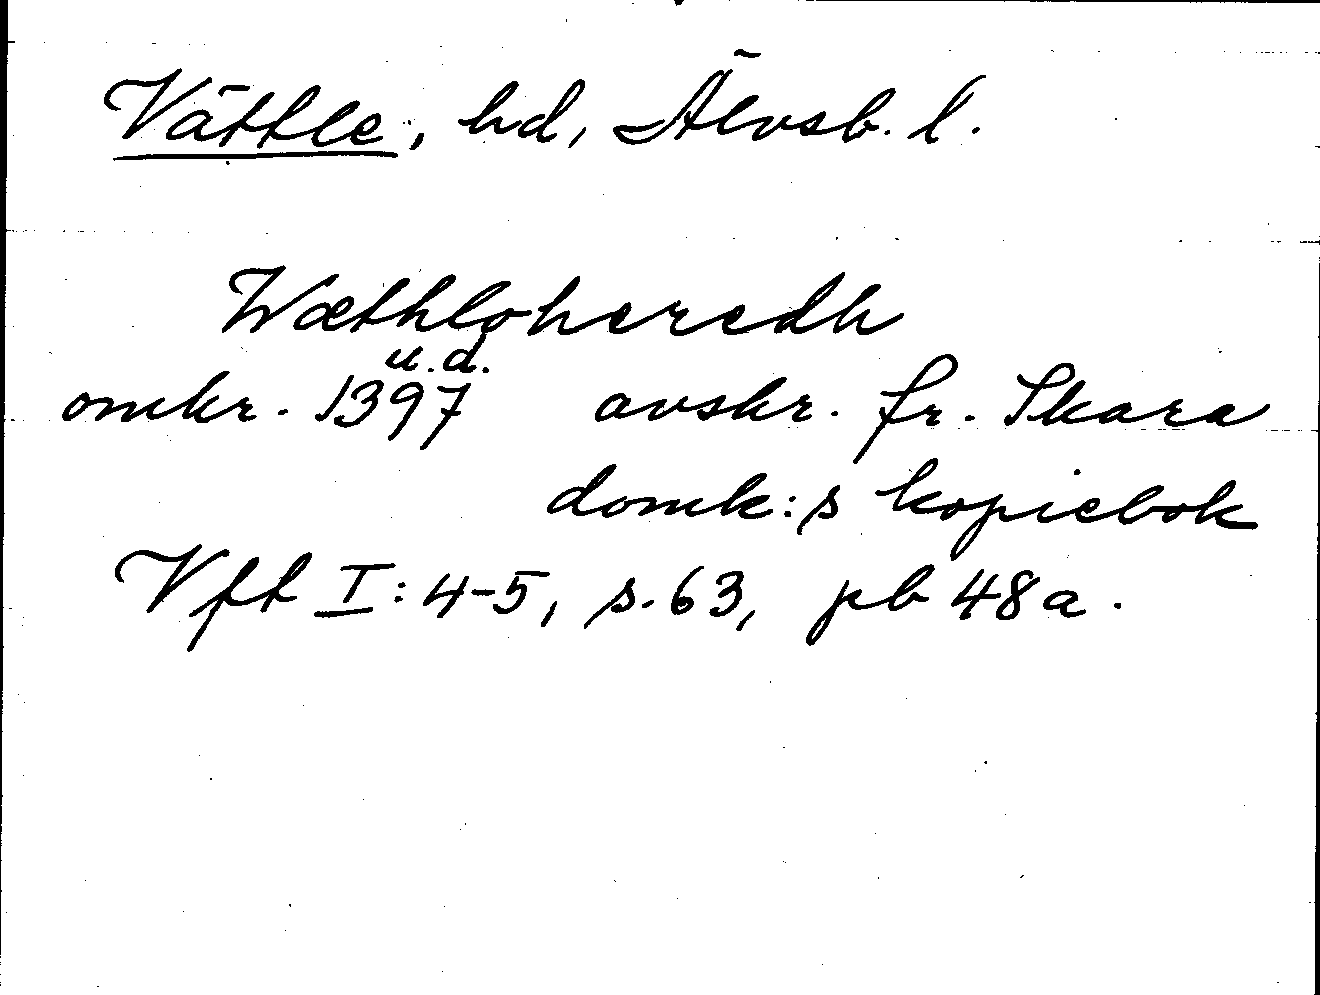 Vättle, hd, Älvsb. l.
Wæthloheredh
u.d.
omkr. 1397 avskr. fr. Skara
domk:s kopiebok
Vft I:4-5, s.63, pb 48a.